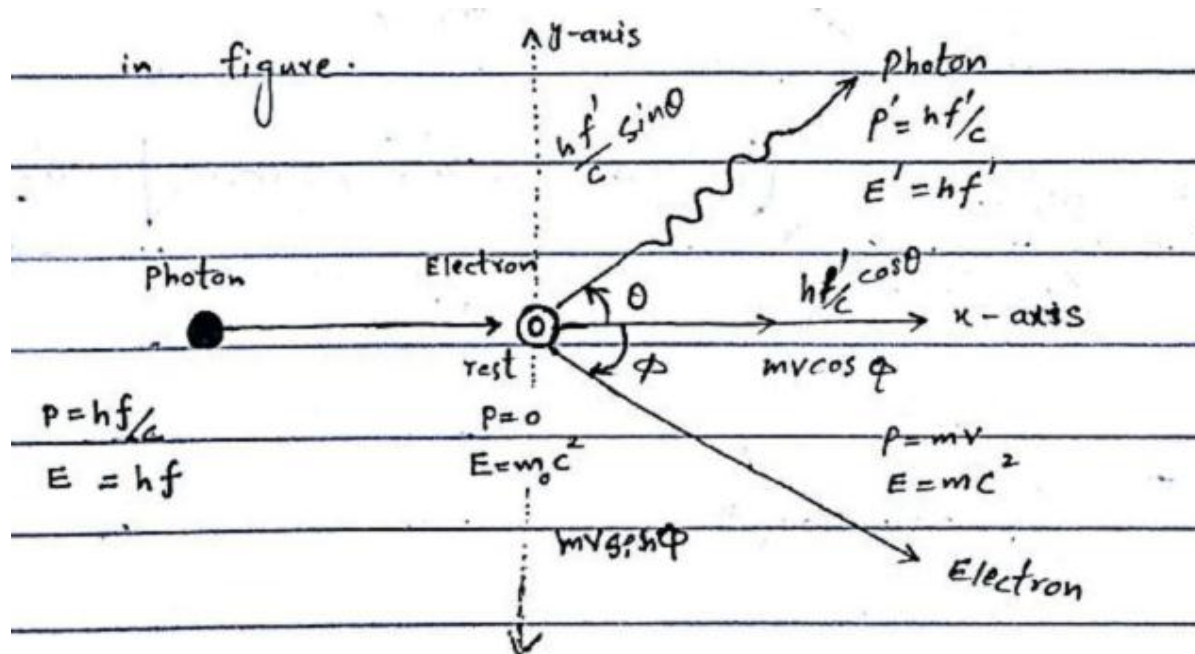 in figure.
y-axis
Photon
P' = hf'/c
E' = hf'
hf'/c sinθ
Photon
Electron
θ
hf'/c cosθ
x-axis
rest
ϕ
mvcos φ
P = hf/c
E = hf
P=0
E=m₀c²
P=mv
E=mc²
mvsinϕ
Electron